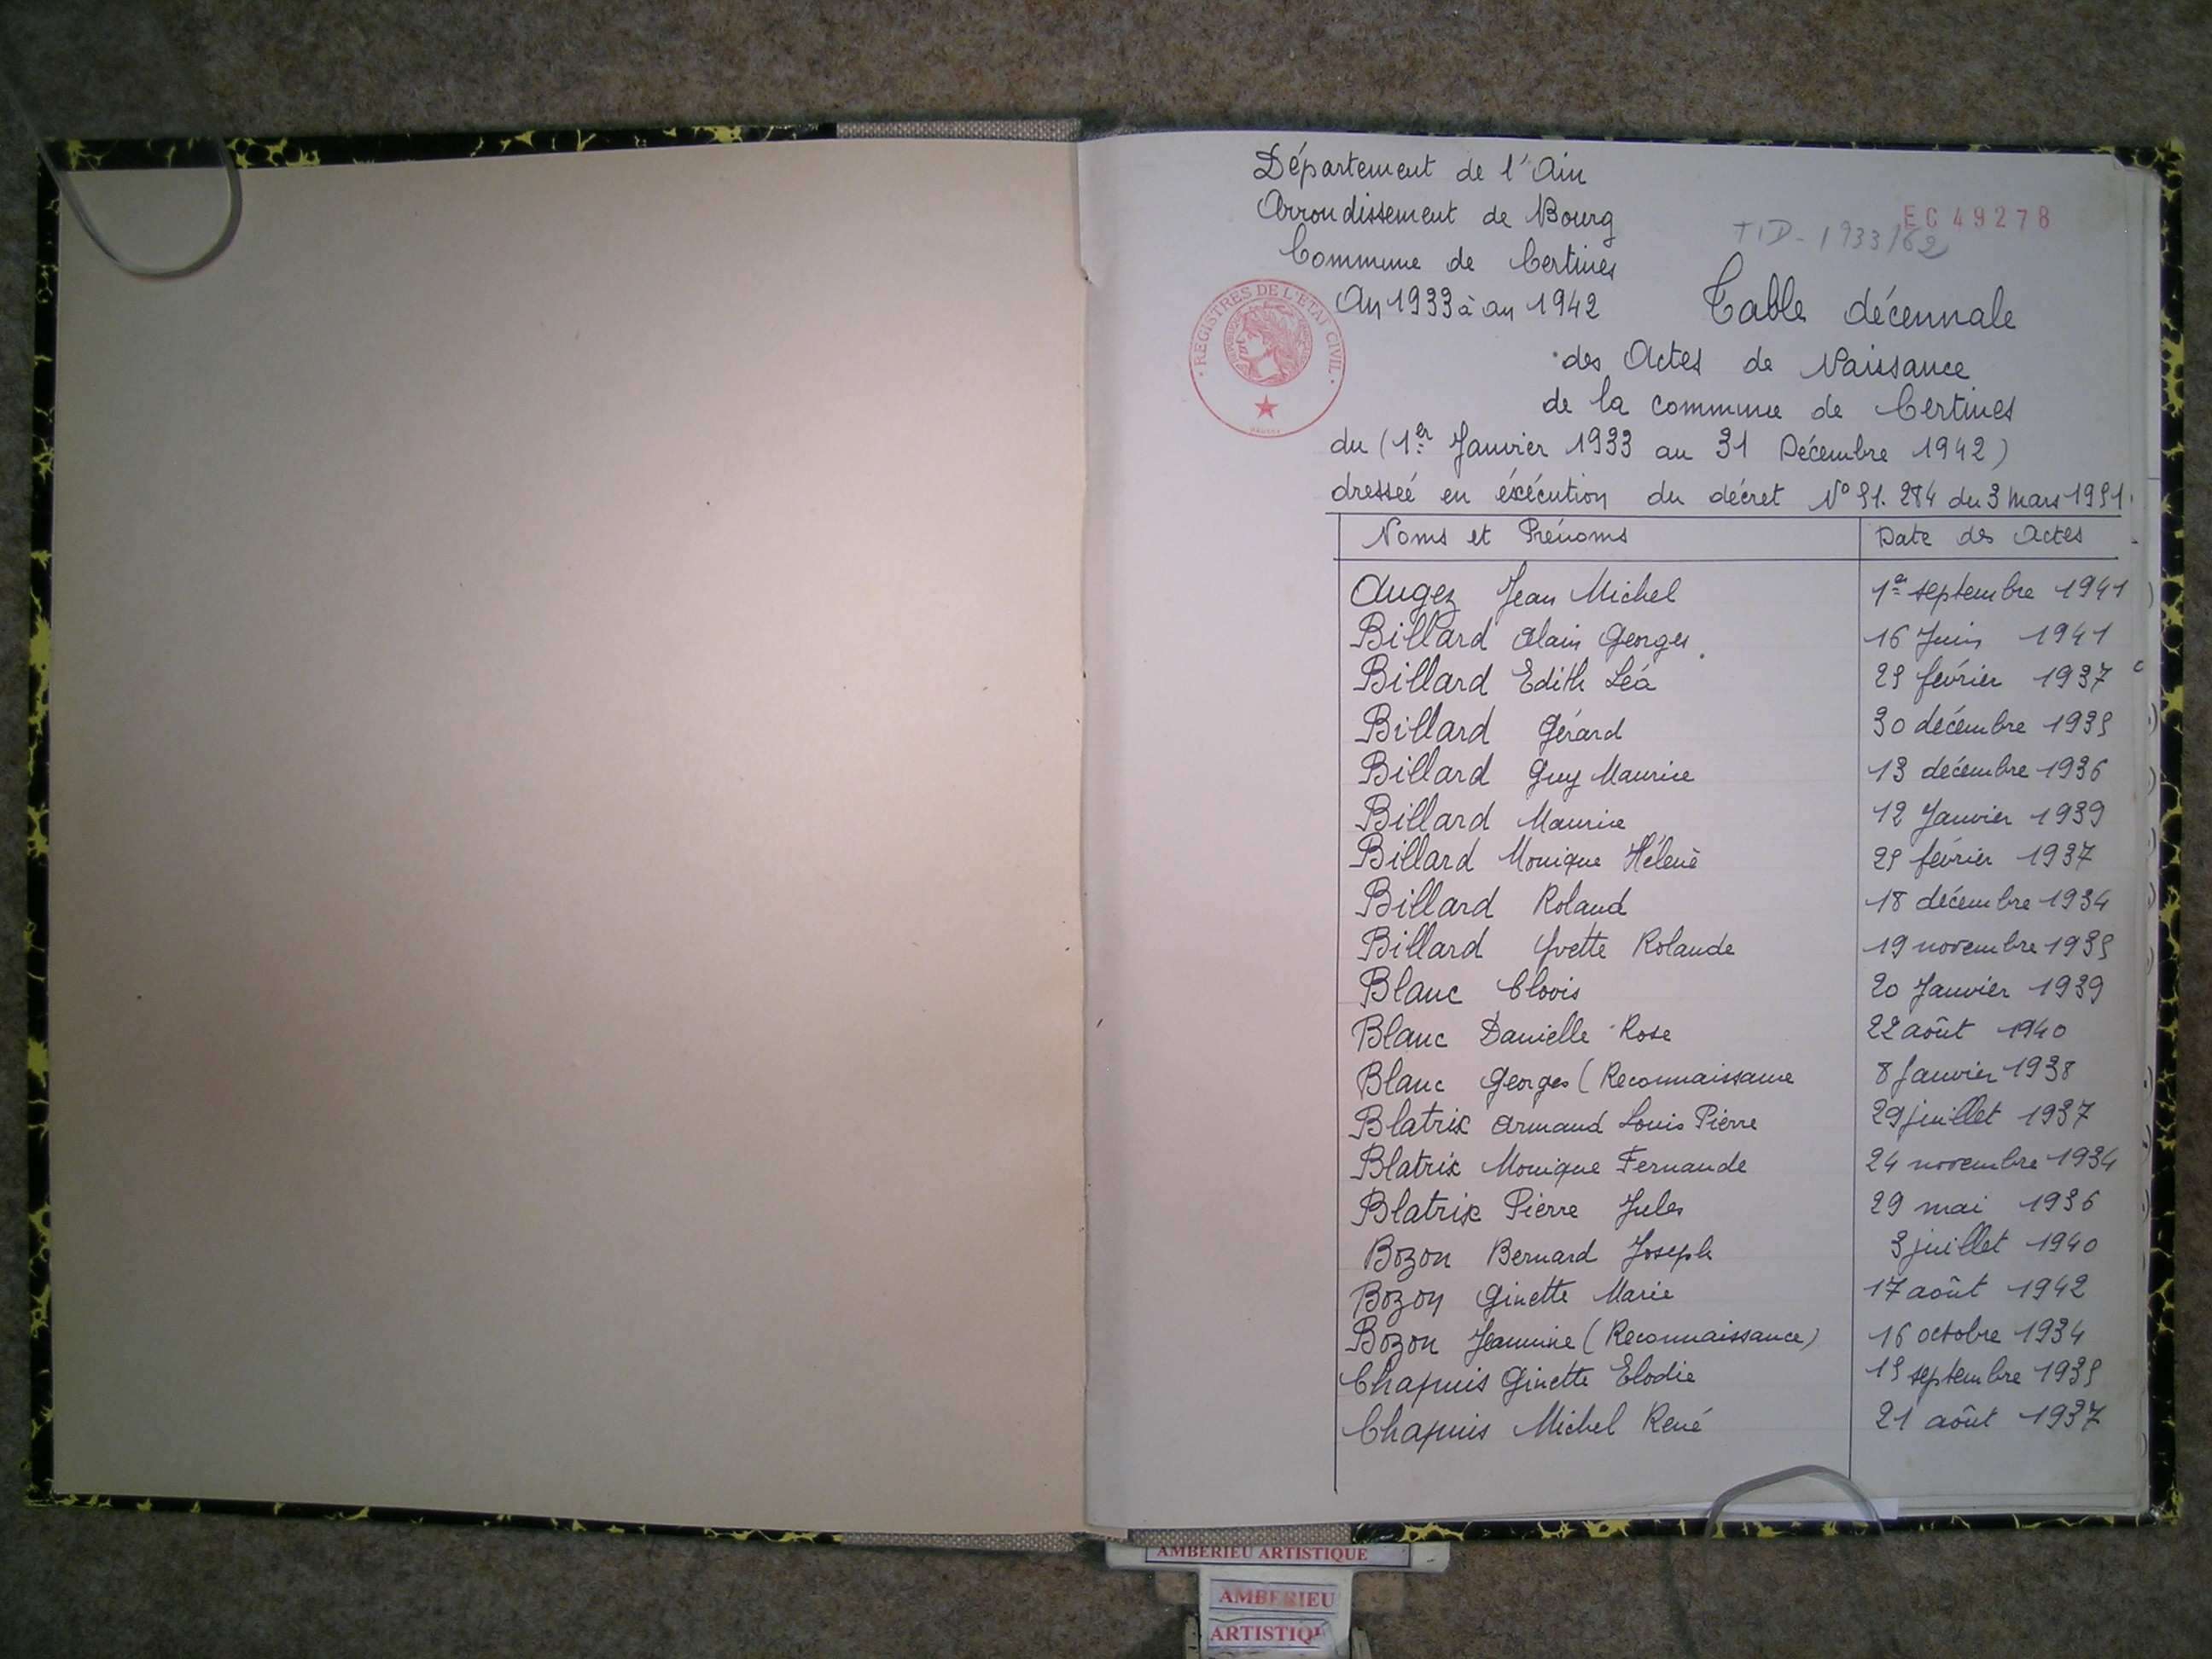 Département de l'Ain
Arrondissement de Bourg
EC 49278
TD-1933/62
Commune de Certines
An 1933 à an 1942
Table décennale
REGISTRES DE L'ETAT CIVIL
des Actes de Naissance
de la commune de Certines
du (1er Janvier 1933 au 31 Décembre 1942)
dresseé en éxécution du décret N° 51.284 du 3 mars 1951.
Noms et Prénoms Date des Actes
Augez Jean Michel 1er septembre 1941
Billard Alain Georges 16 Juin 1941
Billard Edith Léa 25 février 1937
Billard Gérard 30 décembre 1935
Billard Guy Maurice 13 décembre 1936
Billard Maurice 12 Janvier 1939
Billard Monique Hélène 25 février 1937
Billard Roland 18 décembre 1934
Billard Yvette Rolande 19 novembre 1935
Blanc Clovis 20 Janvier 1939
Blanc Danielle Rose 22 août 1940
Blanc Georges (Reconnaissance 8 Janvier 1938
Blatrix Armand Louis Pierre 29 juillet 1937
Blatrix Monique Fernande 24 novembre 1934
Blatrix Pierre Jules 29 mai 1936
Bozon Bernard Joseph 3 juillet 1940
Bozon Ginette Marie 17 août 1942
Bozon Jeannine (Reconnaissance) 16 octobre 1934
Chapuis Ginette Elodie 15 septembre 1935
Chapuis Michel René 21 août 1937
AMBERIEU ARTISTIQUE
AMBERIEU
ARTISTIQU